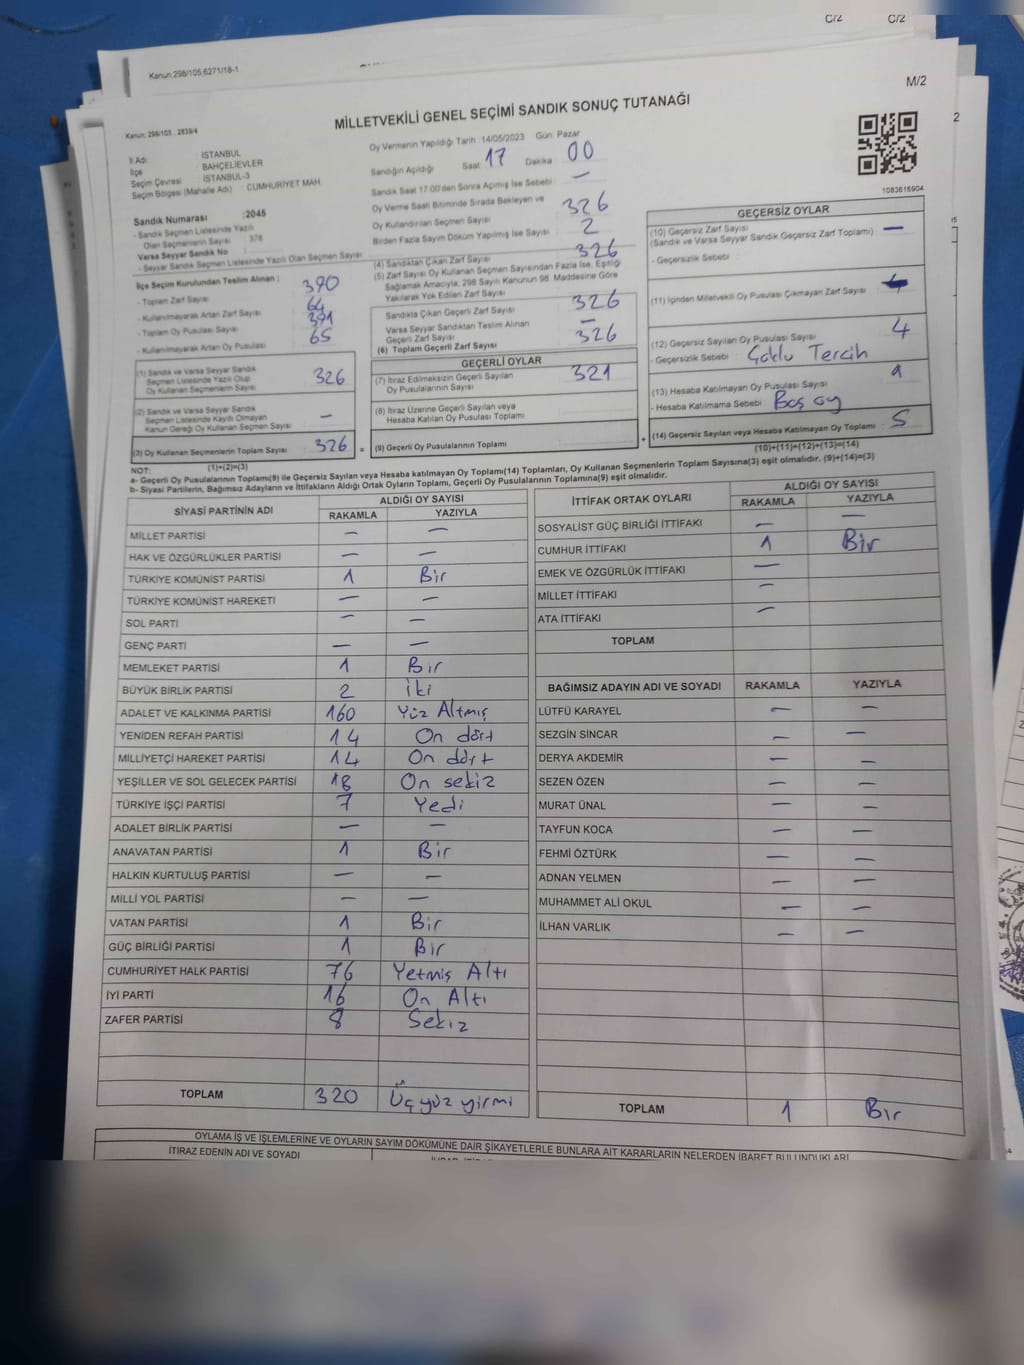 C/2 C/2
Kanun:298/105,6271/18-1
M/2
Kanun: 298/105 , 2839/4
MİLLETVEKİLİ GENEL SEÇİMİ SANDIK SONUÇ TUTANAĞI
İl Adı İSTANBUL
İlçe BAHÇELİEVLER
Seçim Çevresi İSTANBUL-3
Seçim Bölgesi (Mahalle Adı) : CUMHURİYET MAH.
Sandık Numarası :2045
- Sandık Seçmen Listesinde Yazılı
Olan Seçmenlerin Sayısı 378
Varsa Seyyar Sandık No
- Seyyar Sandık Seçmen Listesinde Yazılı Olan Seçmen Sayısı
İlçe Seçim Kurulundan Teslim Alınan :
- Toplam Zarf Sayısı 390
- Kullanılmayarak Artan Zarf Sayısı 64
- Toplam Oy Pusulası Sayısı 391
- Kullanılmayarak Artan Oy Pusulası 65
(1) Sandık ve Varsa Seyyar Sandık
Seçmen Listesinde Yazılı Olup
Oy Kullanan Seçmenlerin Sayısı 326
(2) Sandık ve Varsa Seyyar Sandık
Seçmen Listesinde Kayıtlı Olmayan
Kanun Gereği Oy Kullanan Seçmen Sayısı —
(3) Oy Kullanan Seçmenlerin Toplam Sayısı 326 =
(1)+(2)=(3)
Oy Vermenin Yapıldığı Tarih :14/05/2023 Gün: Pazar
Sandığın Açıldığı Saat 17 Dakika 00
Sandık Saat 17:00'den Sonra Açılmış İse Sebebi : —
Oy Verme Saati Bitiminde Sırada Bekleyen ve
Oy Kullandırılan Seçmen Sayısı 326
Birden Fazla Sayım Döküm Yapılmış İse Sayısı 2
(4) Sandıktan Çıkan Zarf Sayısı 326
(5) Zarf Sayısı Oy Kullanan Seçmen Sayısından Fazla İse, Eşitliği
Sağlamak Amacıyla; 298 Sayılı Kanunun 98. Maddesine Göre
Yakılarak Yok Edilen Zarf Sayısı
Sandıkta Çıkan Geçerli Zarf Sayısı 326
Varsa Seyyar Sandıktan Teslim Alınan
Geçerli Zarf Sayısı —
(6) Toplam Geçerli Zarf Sayısı 326
GEÇERLİ OYLAR
(7) İtiraz Edilmeksizin Geçerli Sayılan
Oy Pusulalarının Sayısı 321
(8) İtiraz Üzerine Geçerli Sayılan veya
Hesaba Katılan Oy Pusulası Toplamı
(9) Geçerli Oy Pusulalarının Toplamı +
1083616904
GEÇERSİZ OYLAR
(10) Geçersiz Zarf Sayısı —
(Sandık ve Varsa Seyyar Sandık Geçersiz Zarf Toplamı)
- Geçersizlik Sebebi
(11) İçinden Milletvekili Oy Pusulası Çıkmayan Zarf Sayısı
(12) Geçersiz Sayılan Oy Pusulası Sayısı 4
- Geçersizlik Sebebi : Çoklu Tercih
(13) Hesaba Katılmayan Oy Pusulası Sayısı
- Hesaba Katılmama Sebebi : Boş oy
(14) Geçersiz Sayılan veya Hesaba Katılmayan Oy Toplamı : 5
(10)+(11)+(12)+(13)=(14)
NOT:
a- Geçerli Oy Pusulalarının Toplamı(9) ile Geçersiz Sayılan veya Hesaba katılmayan Oy Toplamı(14) Toplamları, Oy Kullanan Seçmenlerin Toplam Sayısına(3) eşit olmalıdır. (9)+(14)=(3)
b- Siyasi Partilerin, Bağımsız Adayların ve İttifakların Aldığı Ortak Oyların Toplamı, Geçerli Oy Pusulalarının Toplamına(9) eşit olmalıdır.
SİYASİ PARTİNİN ADI ALDIĞI OY SAYISI
RAKAMLA YAZIYLA
MİLLET PARTİSİ — —
HAK VE ÖZGÜRLÜKLER PARTİSİ — —
TÜRKİYE KOMÜNİST PARTİSİ 1 Bir
TÜRKİYE KOMÜNİST HAREKETİ — —
SOL PARTİ — —
GENÇ PARTİ — —
MEMLEKET PARTİSİ 1 Bir
BÜYÜK BİRLİK PARTİSİ 2 İki
ADALET VE KALKINMA PARTİSİ 160 Yüz Altmış
YENİDEN REFAH PARTİSİ 14 On dört
MİLLİYETÇİ HAREKET PARTİSİ 14 On dört
YEŞİLLER VE SOL GELECEK PARTİSİ 18 On sekiz
TÜRKİYE İŞÇİ PARTİSİ 7 Yedi
ADALET BİRLİK PARTİSİ — —
ANAVATAN PARTİSİ 1 Bir
HALKIN KURTULUŞ PARTİSİ — —
MİLLİ YOL PARTİSİ — —
VATAN PARTİSİ 1 Bir
GÜÇ BİRLİĞİ PARTİSİ 1 Bir
CUMHURİYET HALK PARTİSİ 76 Yetmiş Altı
İYİ PARTİ 16 On Altı
ZAFER PARTİSİ 8 Sekiz
TOPLAM 320 Üç yüz yirmi
İTTİFAK ORTAK OYLARI ALDIĞI OY SAYISI
RAKAMLA YAZIYLA
SOSYALİST GÜÇ BİRLİĞİ İTTİFAKI — —
CUMHUR İTTİFAKI 1 Bir
EMEK VE ÖZGÜRLÜK İTTİFAKI —
MİLLET İTTİFAKI —
ATA İTTİFAKI —
TOPLAM
BAĞIMSIZ ADAYIN ADI VE SOYADI RAKAMLA YAZIYLA
LÜTFÜ KARAYEL — —
SEZGİN SİNCAR — —
DERYA AKDEMİR — —
SEZEN ÖZEN — —
MURAT ÜNAL — —
TAYFUN KOCA — —
FEHMİ ÖZTÜRK — —
ADNAN YELMEN — —
MUHAMMET ALİ OKUL — —
İLHAN VARLIK — —
TOPLAM 1 Bir
OYLAMA İŞ VE İŞLEMLERİNE VE OYLARIN SAYIM DÖKÜMÜNE DAİR ŞİKAYETLERLE BUNLARA AİT KARARLARIN NELERDEN İBARET BULUNDUKLARI
İTİRAZ EDENİN ADI VE SOYADI